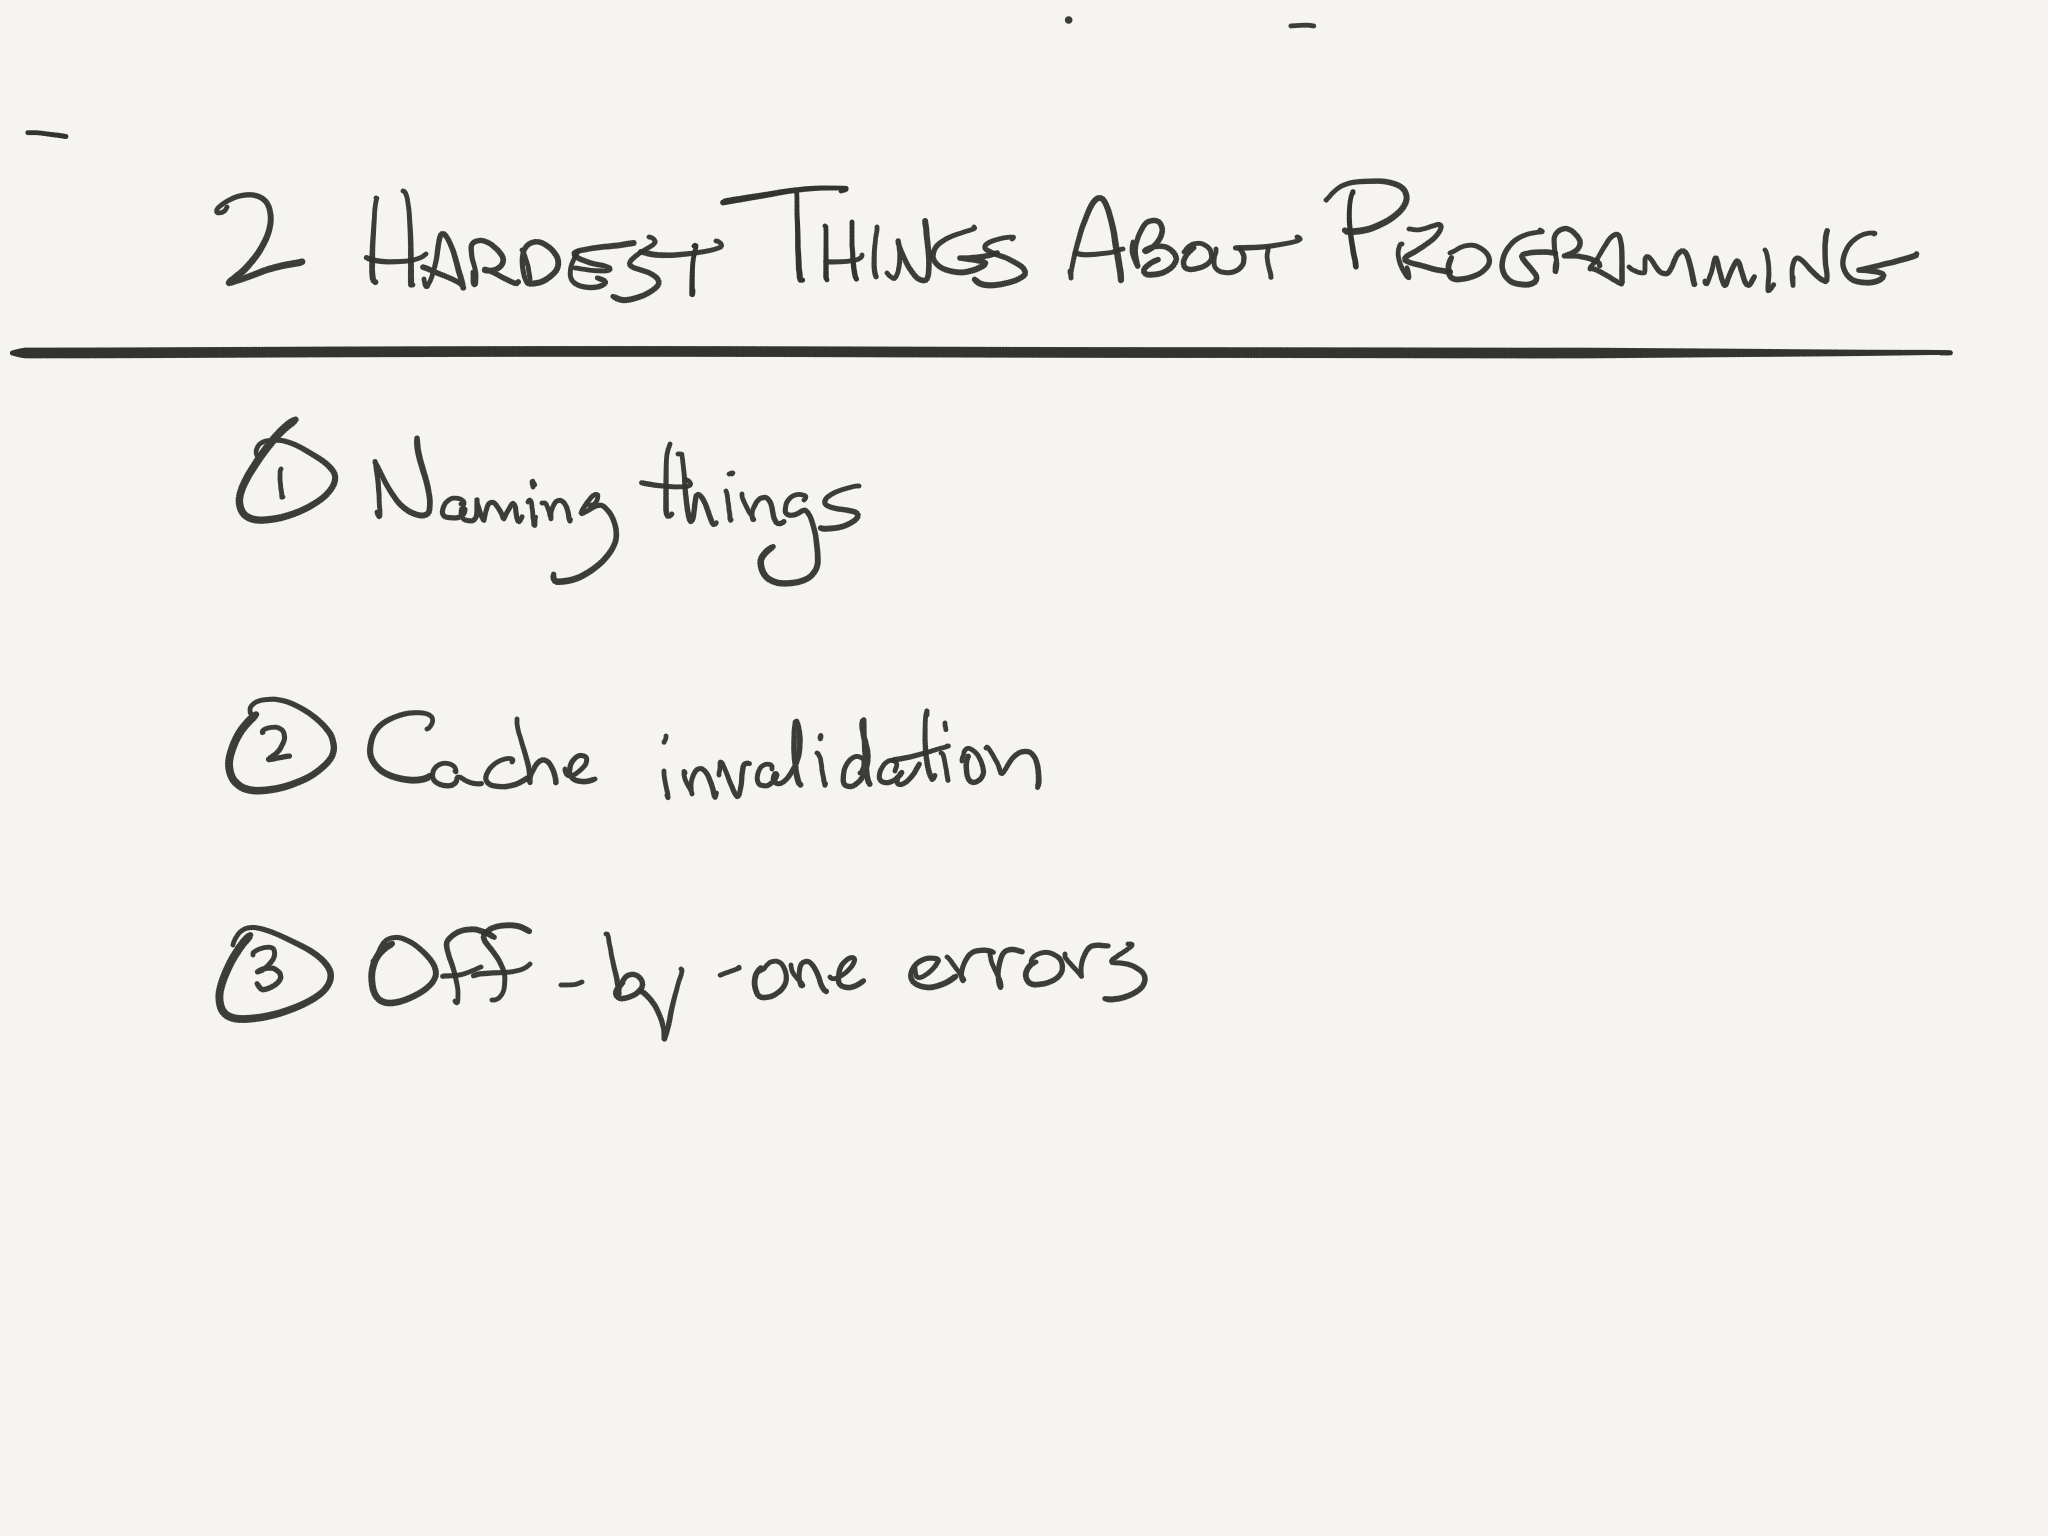 2 HARDEST THINGS ABOUT PROGRAMMING
① Naming things
② Cache invalidation
③ Off-by-one errors